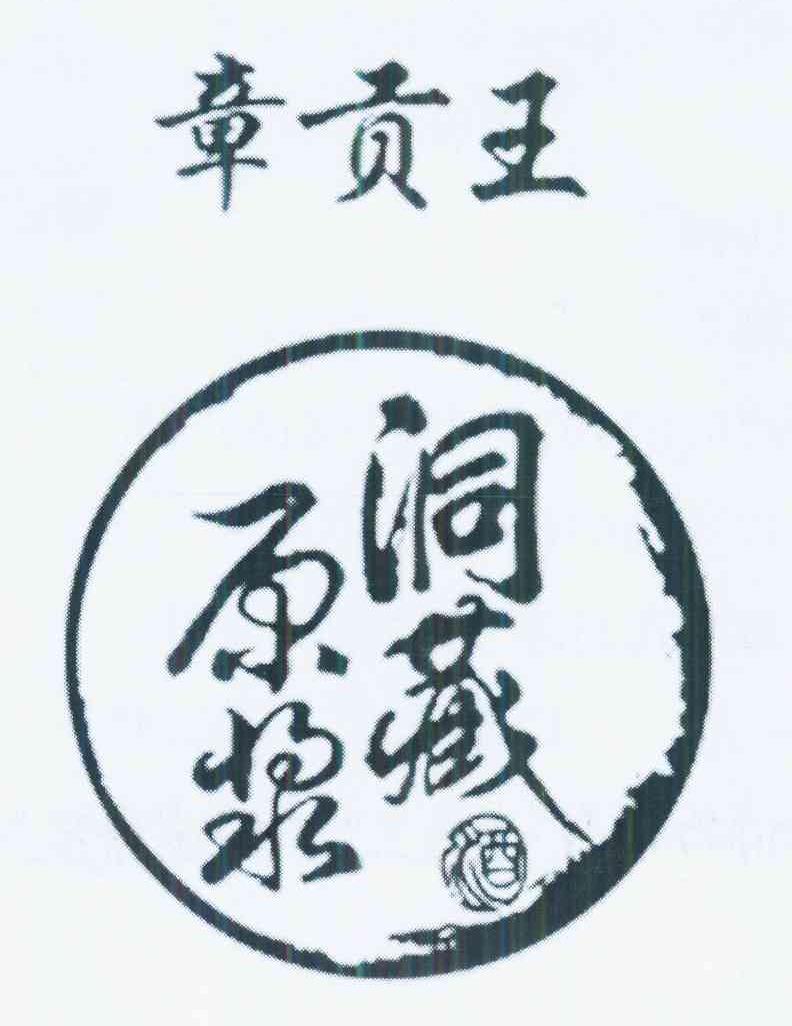 章贡王
洞藏
原浆